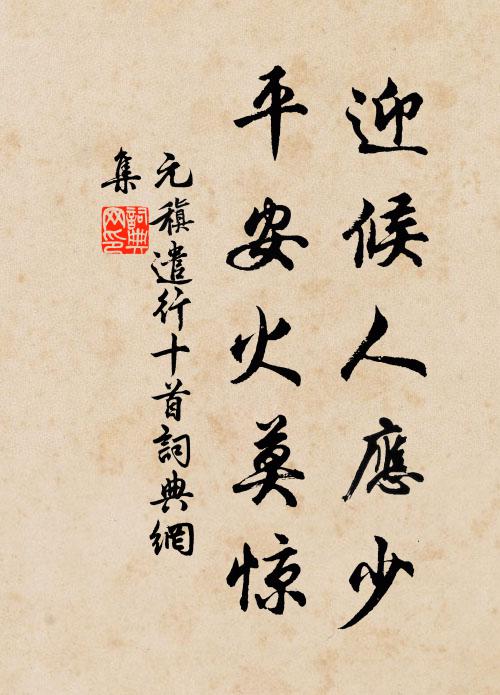 迎候人應少
平安火莫惊
元稹遣行十首詞典網
集
詞典
网印